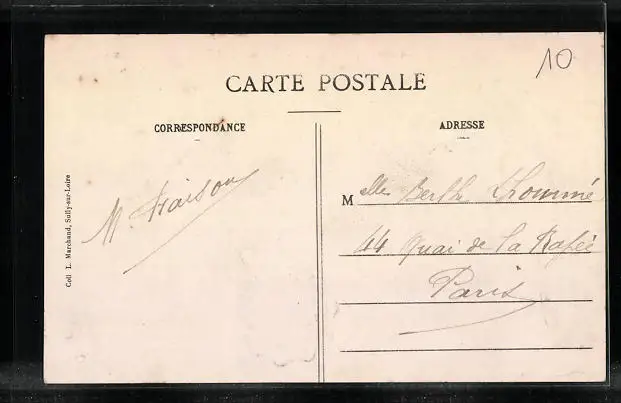 10
CARTE POSTALE
CORRESPONDANCE
ADRESSE
Coll L. Marchand, Sully-sur-Loire
M Fraison
Melle Berthe Lhommé
44 Quai de La Rapée
Paris